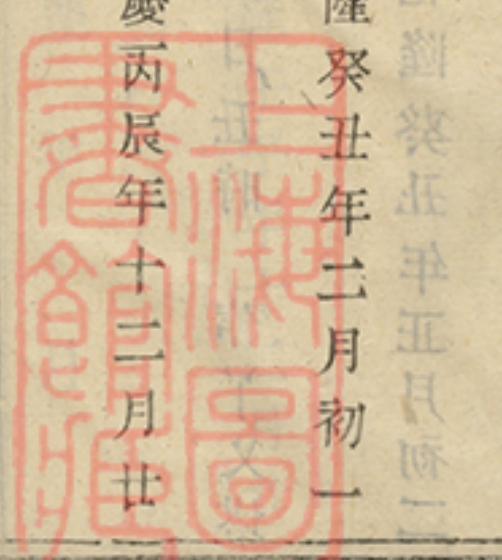 隆癸丑年二月初一
慶丙辰年十二月廿
上海圖
書館藏